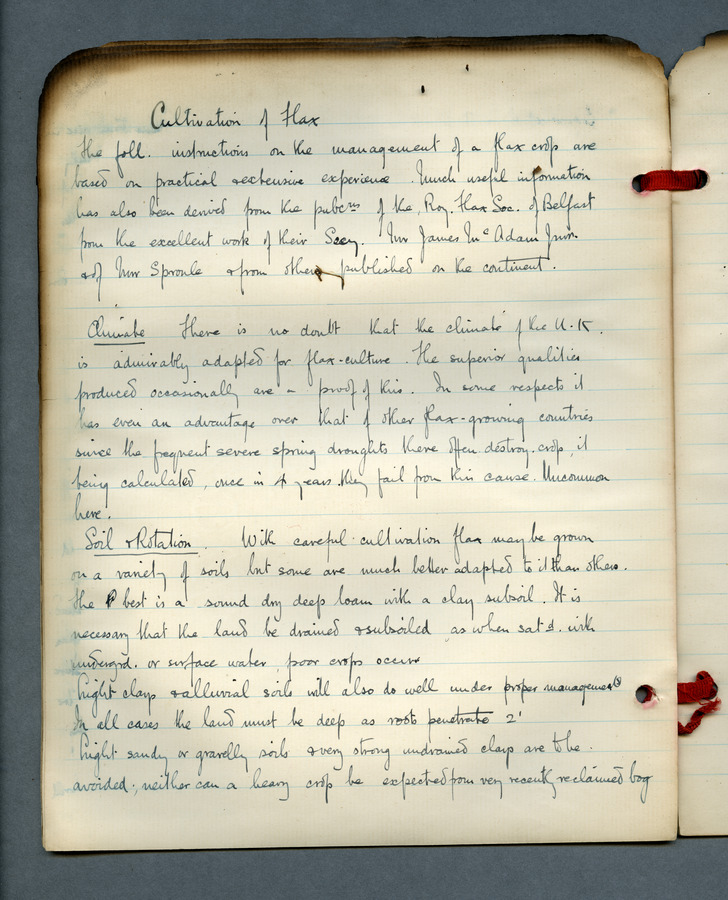 Cultivation of Flax
The foll. instructions on the management of a flax crop are
based on practical & extensive experience. Much useful information
has also been derived from the pubcns of the, Roy. Flax Soc. of Belfast
from the excellent work of their Secy. Mr James Mc Adam Junr.
& of Mr Sproule & from others published on the continent.
Climate There is no doubt that the climate of the U.K.
is admirably adapted for flax-culture. The superior qualities
produced occasionally are a proof of this. In some respects it
has even an advantage over that of other flax-growing countries
since the frequent severe spring droughts there often destroy crop, it
being calculated, once in 4 years they fail from this cause. Uncommon
here.
Soil & Rotation. With careful cultivation flax may be grown
on a variety of soils but some are much better adapted to it than others.
The best is a sound dry deep loam with a clay subsoil. It is
necessary that the land be drained & subsoiled as when satd. with
undergrd. or surface water, poor crops occur
Light clays & alluvial soils will also do well under proper management
In all cases the land must be deep as roots penetrate 2'
Light sandy or gravelly soils & very strong undrained clays are to be
avoided; neither can a heavy crop be expected from very recently reclaimed bog